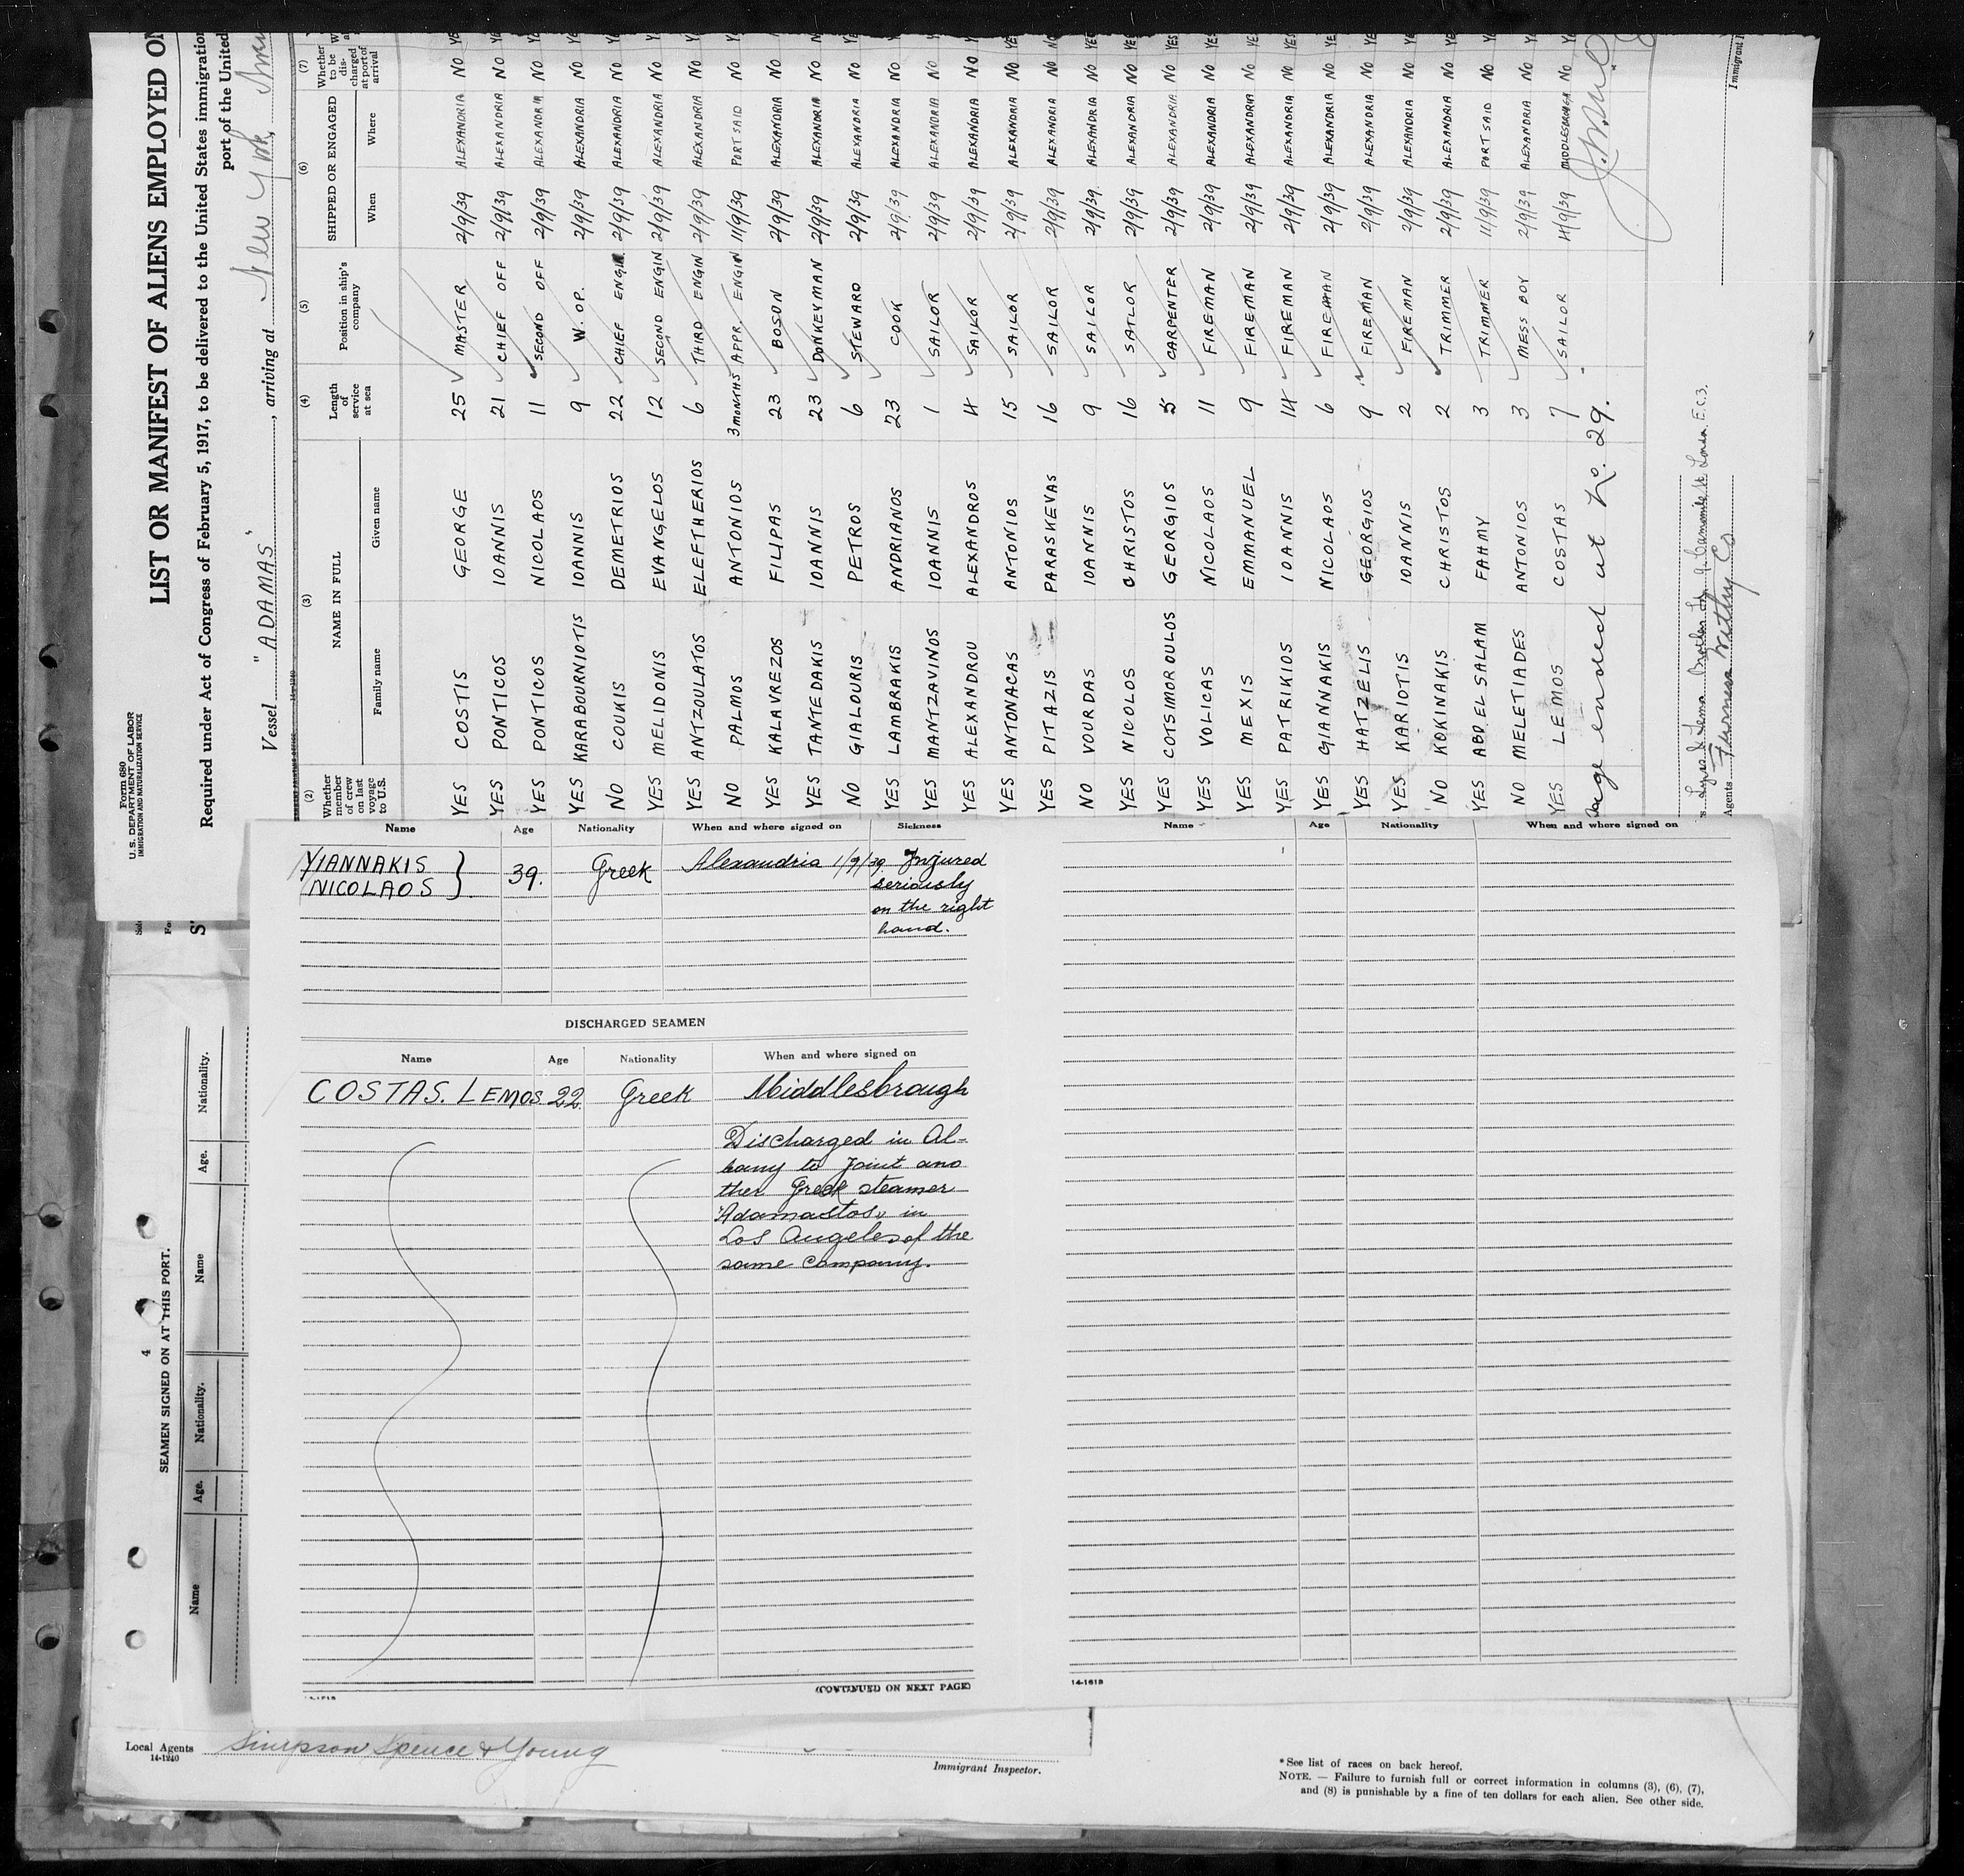 Form 680
U. S. DEPARTMENT OF LABOR
IMMIGRATION AND NATURALIZATION SERVICE
LIST OR MANIFEST OF ALIENS EMPLOYED ON
Required under Act of Congress of February 5, 1917, to be delivered to the United States immigration
port of the United
Vessel "ADAMAS", arriving at New York,
(2) (3) (4) (5) (6) (7)
Whether member of crew on last voyage to U.S. NAME IN FULL Length of service at sea Position in ship's company SHIPPED OR ENGAGED Whether to be discharged at port of arrival
Family name Given name When Where
YES COSTIS GEORGE 25 MASTER 2/9/39 ALEXANDRIA NO YE
YES PONTICOS IOANNIS 21 CHIEF OFF 2/9/39 ALEXANDRIA NO YE
YES PONTICOS NICOLAOS 11 SECOND OFF 2/9/39 ALEXANDRIA NO YE
YES KARABOURNIOTIS IOANNIS 9 W. OP. 2/9/39 ALEXANDRIA NO YE
NO COUKIS DEMETRIOS 22 CHIEF ENGIN 2/9/39 ALEXANDRIA NO YE
YES MELIDONIS EVANGELOS 12 SECOND ENGIN 2/9/39 ALEXANDRIA NO YE
YES ANTZOULATOS ELEFTHERIOS 6 THIRD ENGIN 2/9/39 ALEXANDRIA NO YE
NO PALMOS ANTONIOS 3 MONTHS APPR. ENGIN 11/9/39 PORT SAID NO YE
YES KALAVREZOS FILIPAS 23 BOSON 2/9/39 ALEXANDRIA NO
YES TANTEDAKIS IOANNIS 23 DONKEYMAN 2/9/39 ALEXANDRIA NO N
NO GIALOURIS PETROS 6 STEWARD 2/9/39 ALEXANDRIA NO YE
YES LAMBRAKIS ANDRIANOS 23 COOK 2/9/39 ALEXANDRIA NO
YES MANTZAVINOS IOANNIS 1 SAILOR 2/9/39 ALEXANDRIA NO
YES ALEXANDROU ALEXANDROS 4 SAILOR 2/9/39 ALEXANDRIA NO YE
YES ANTONACAS ANTONIOS 15 SAILOR 2/9/39 ALEXANDRIA NO YES
YES PITAZIS PARASKEVAS 16 SAILOR 2/9/39 ALEXANDRIA NO NO
NO VOURDAS IOANNIS 9 SAILOR 2/9/39 ALEXANDRIA NO YES
YES NICOLOS CHRISTOS 16 SAILOR 2/9/39 ALEXANDRIA NO YES
YES COTSIMOROULOS GEORGIOS 5 CARPENTER 2/9/39 ALEXANDRIA NO YES
YES VOLICAS NICOLAOS 11 FIREMAN 2/9/39 ALEXANDRIA NO YES
YES MEXIS EMMANUEL 9 FIREMAN 2/9/39 ALEXANDRIA NO YES
YES PATRIKIOS IOANNIS 14 FIREMAN 2/9/39 ALEXANDRIA NO YES
YES GIANNAKIS NICOLAOS 6 FIREMAN 2/9/39 ALEXANDRIA NO YE
YES HATZELIS GEORGIOS 9 FIREMAN 2/9/39 ALEXANDRIA NO YE
YES KARIOTIS IOANNIS 2 FIREMAN 2/9/39 ALEXANDRIA NO YE
NO KOKINAKIS CHRISTOS 2 TRIMMER 2/9/39 ALEXANDRIA NO YE
YES ABD EL SALAM FAHMY 3 TRIMMER 11/9/39 PORT SAID NO YE
NO MELETIADES ANTONIOS 3 MESS BOY 2/9/39 ALEXANDRIA NO YE
YES LEMOS COSTAS 7 SAILOR MIDDLESBROUGH NO YE
ended at No. 29.
London. E.C.3.
Agents Furness Withy Co
Immigrant I
Name Age Nationality When and where signed on Sickness
YIANNAKIS
NICOLAOS } 39. Greek Alexandria 1/9/39 Injured
seriously
on the right
hand.
DISCHARGED SEAMEN
Name Age Nationality When and where signed on
COSTAS. LEMOS 22 Greek Middlesbrough
Discharged in Al-
bany to Joint ano
ther Greek steamer
"Adamastos" in
Los Angeles of the
same Company.
(CONTINUED ON NEXT PAGE)
Name Age Nationality When and where signed on
14-1618
4
SEAMEN SIGNED ON AT THIS PORT.
Name Age. Nationality. Name Age. Nationality.
Local Agents Simpson, Spence & Young
14-1240
Immigrant Inspector.
*See list of races on back hereof.
NOTE. — Failure to furnish full or correct information in columns (3), (6), (7),
and (8) is punishable by a fine of ten dollars for each alien. See other side.